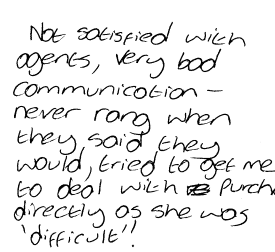 Not satisfied with
agents, very bad
communication -
never rang when
they said they
would, tried to get me
to deal with Purch
directly as she was
'difficult'!